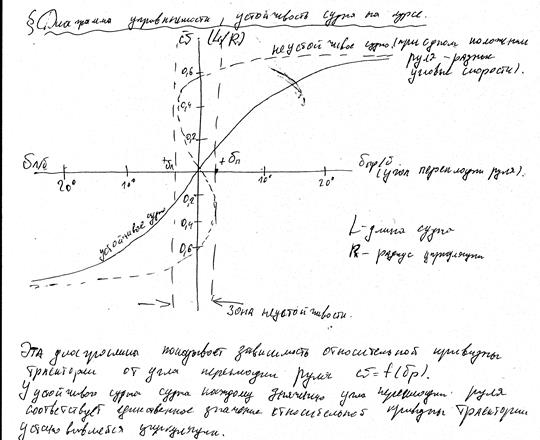 § Диаграмма управляемости, устойчивость судна на курсе.
ω̄ (L/R)
неустойчивое судно (при одном положении
руля - разные
угловые скорости).
0,6
0,4
0,2
δл/б
-δп
+δп
δпр/б (угол перекладки руля).
20°
10°
10°
20°
0,2
0,4
0,6
устойчивое судно
L - длина судна
R - радиус циркуляции
Зона неустойчивости.
Эта диаграмма показывает зависимость относительной кривизны
траектории от угла перекладки руля ω̄ = f(δр).
У устойчивого судна судна каждому значению угла перекладки руля
соответствует единственное значение относительной кривизны траектории
установившейся циркуляции.